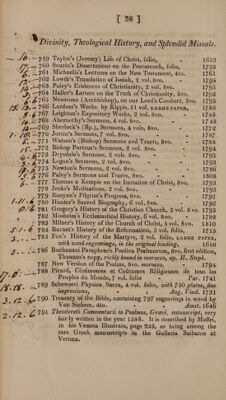 [ 38 ]
Divinity, Theological History, and Splendid Missals.
759 Taylor's (Jeremy) Life of Christ, folio, 1653
760 Saurin's Dissertations on the Pentateuch, folio, 1723
761 Michaelis's Lectures on the New Testament, 4to. 1761
762 Lowth's Translation of Isaiah, 2 vol. 8vo. 1795
763 Paley's Evidences of Christianity, 2 vol. 8vo. 1795
764 Haller's Letters on the Truth of Christianity, 8vo. 1783
765 Newcome (Archbishop), on our Lord's Conduct, 8vo. 1795
766 Lardner's Works by Kippis, 11 vol. LARGE PAPER, 1788
767 Leighton's Expository Works, 2 vol. 8vo. 1748
768 Abernethy's Sermons, 4 vol. 8vo. 1748
769 Sherlock's (Bp.), Sermons, 4 vols, 8vo. 1772
770 Jortin's Sermons, 7 vol. 8vo. 1787
771 Watson's (Bishop) Sermons and Tracts, 8vo. 1788
772 Bishop Porteus's Sermons, 2 vol. 8vo. 1794
773 Drysdale's Sermons, 2 vols. 8vo. 1793
774 Logan's Sermons, 2 vol. 8vo. 1793
775 Newton's Sermons, 2 vol. 8vo. 1786
776 Paley's Sermons and Tracts, 8vo. 1808
777 Thomas a Kempis on the Imitation of Christ, 8vo. 1793
778 Jenks's Meditations, 2 vol. 8vo. 1793
779 Bunyan's Pilgrim's Progress 1792
780 Hunter's Sacred Biography, 6 vol. 8vo. 1792
781 Gregory's History of the Christian Church, 2 vol. 8vo. 1795
782 Mosheim's Ecclesiastical History, 6 vol. 8vo. 1782
783 Milner's History of the Church of Christ, 5 vol. 8vo. 1810
784 Burnet's History of the Reformation, 3 vol. folio, 1715
785 Fox's History of the Martyrs, 2 vol. folio, LARGE PAPER, with wood engravings, in the original binding,
786 Buchanani Paraphrasis Poetica Psalmorum, 8vo. first edition, Thuanus's copy, richly bound in morocco, ap. H. Steph.
787 New Version of the Psalms, 8vo. morocco, 1794
788 Picard, Cérémonies et Coûtumes Réligieuses de tous les Peuples du Monde, 7 vol. folio Par. 1741
789 Scheuzeri Physica Sacra, 4 vol. folio, with 750 plates, fine impressions, Aug. Vind. 1731
790 Treasury of the Bible, containing 797 engravings in wood by Van Sichem, 4to. Amst. 1646
791 Theodoreti Commentarii in Psalmos, Græcè, manuscript, very fairly written in the year 1548. It is described by Maffei, in his Verona Illustrata, page 243, as being among the rare Greek manuscripts in the Galleria Saibante at Verona.